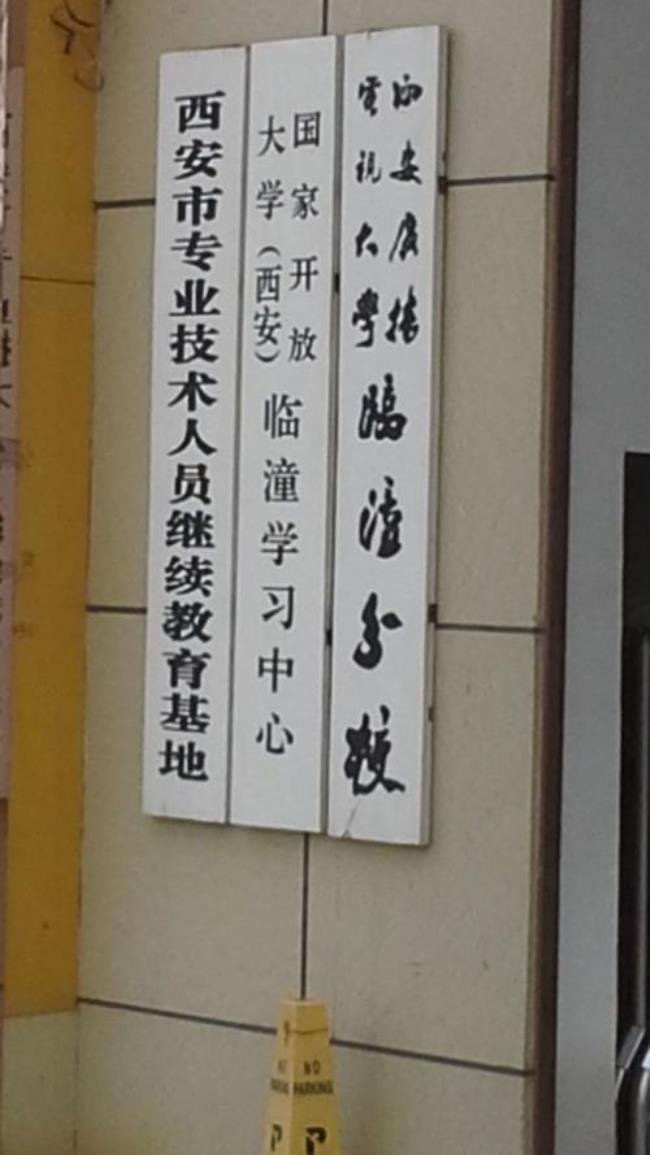 西安广播
電視大學
臨潼分校
国家开放
大学（西安）
临潼学习中心
西安市专业技术人员继续教育基地
NO
PARKING
P